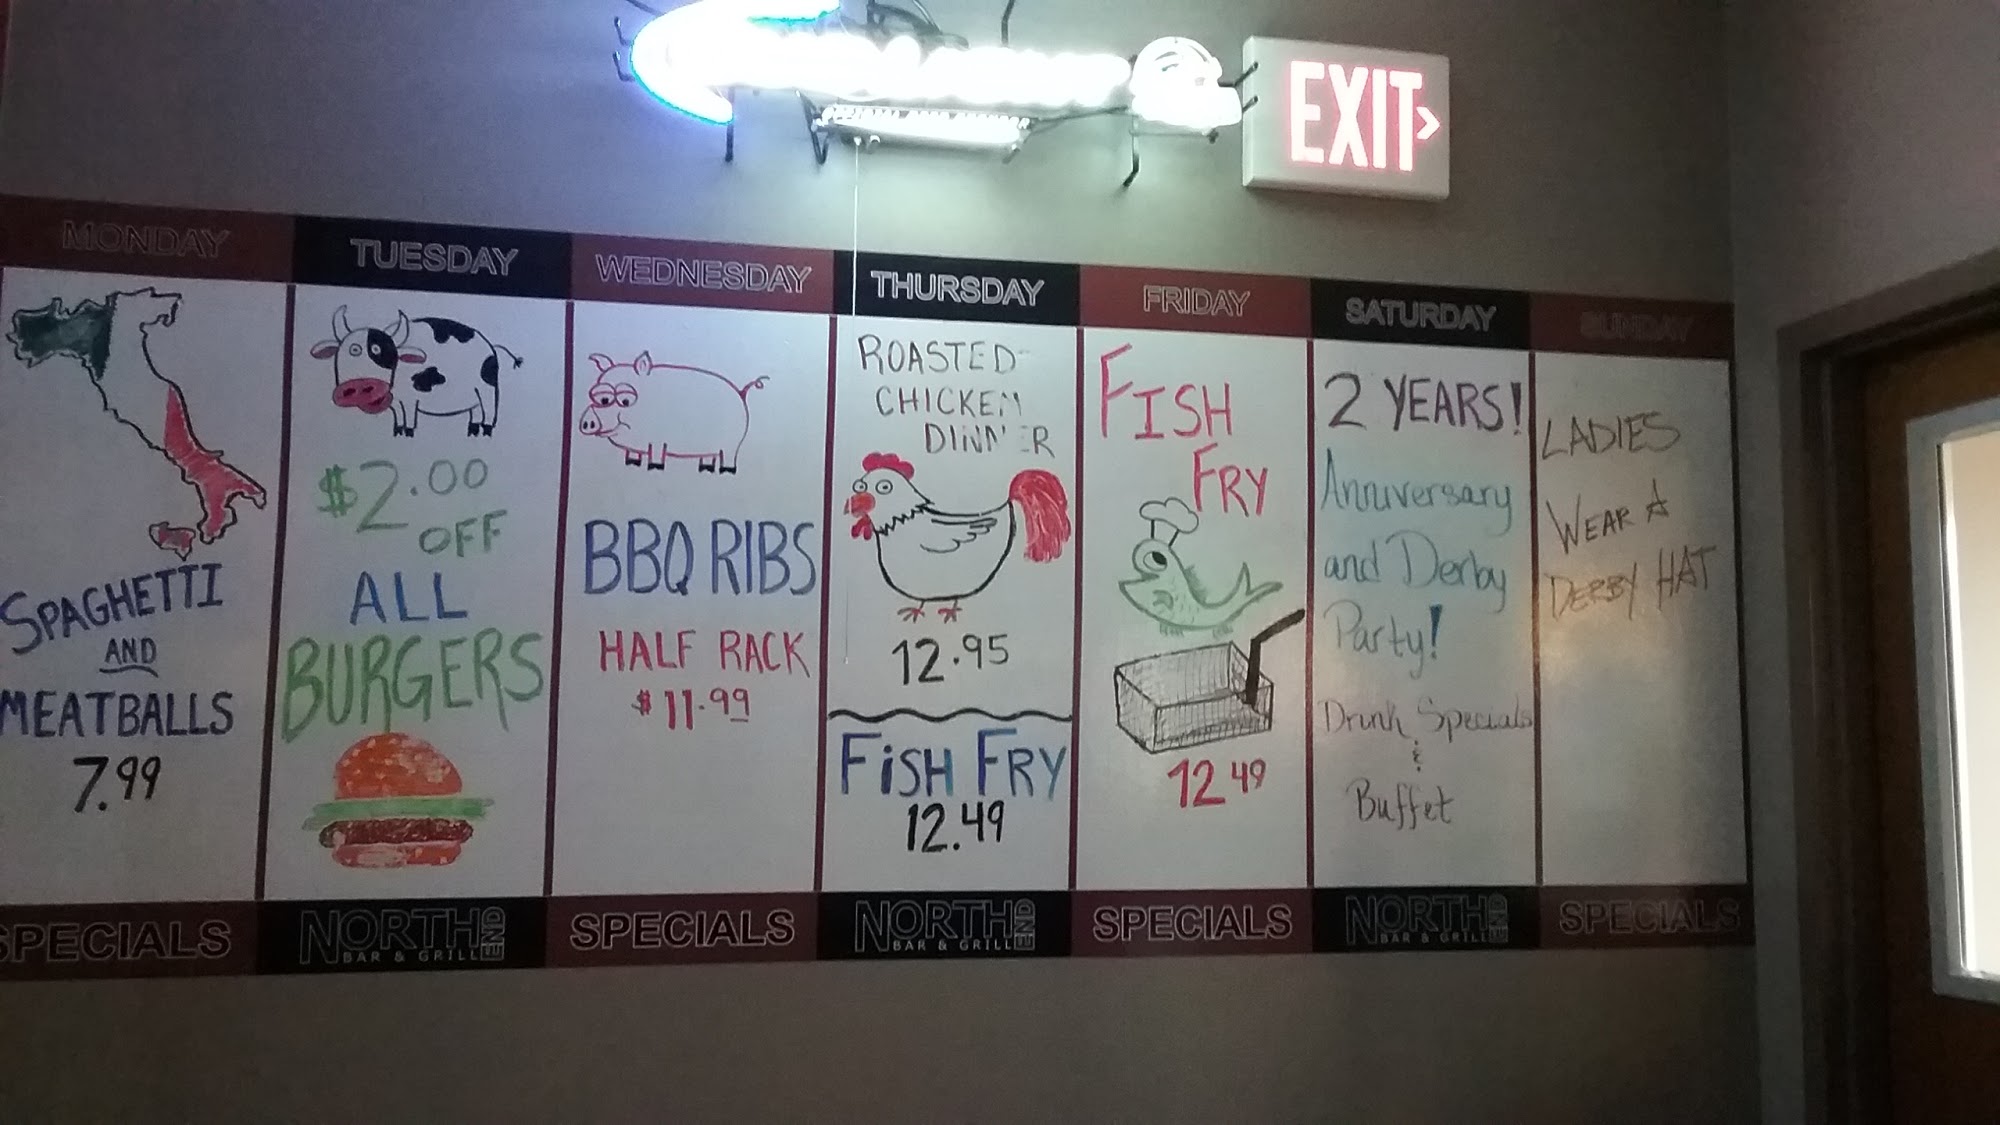 EXIT
MONDAY
SPAGHETTI
AND
MEATBALLS
7.99
SPECIALS
TUESDAY
$2.00
OFF
ALL
BURGERS
NORTH END
BAR & GRILL
WEDNESDAY
BBQ RIBS
HALF RACK
$11.99
SPECIALS
THURSDAY
ROASTED
CHICKEN
DINNER
12.95
FISH FRY
12.49
NORTH END
BAR & GRILL
FRIDAY
FISH
FRY
12.49
SPECIALS
SATURDAY
2 YEARS!
Anniversary
and Derby
Party!
Drink Specials
&
Buffet
NORTH END
BAR & GRILL
SUNDAY
LADIES
WEAR A
DERBY HAT
SPECIALS